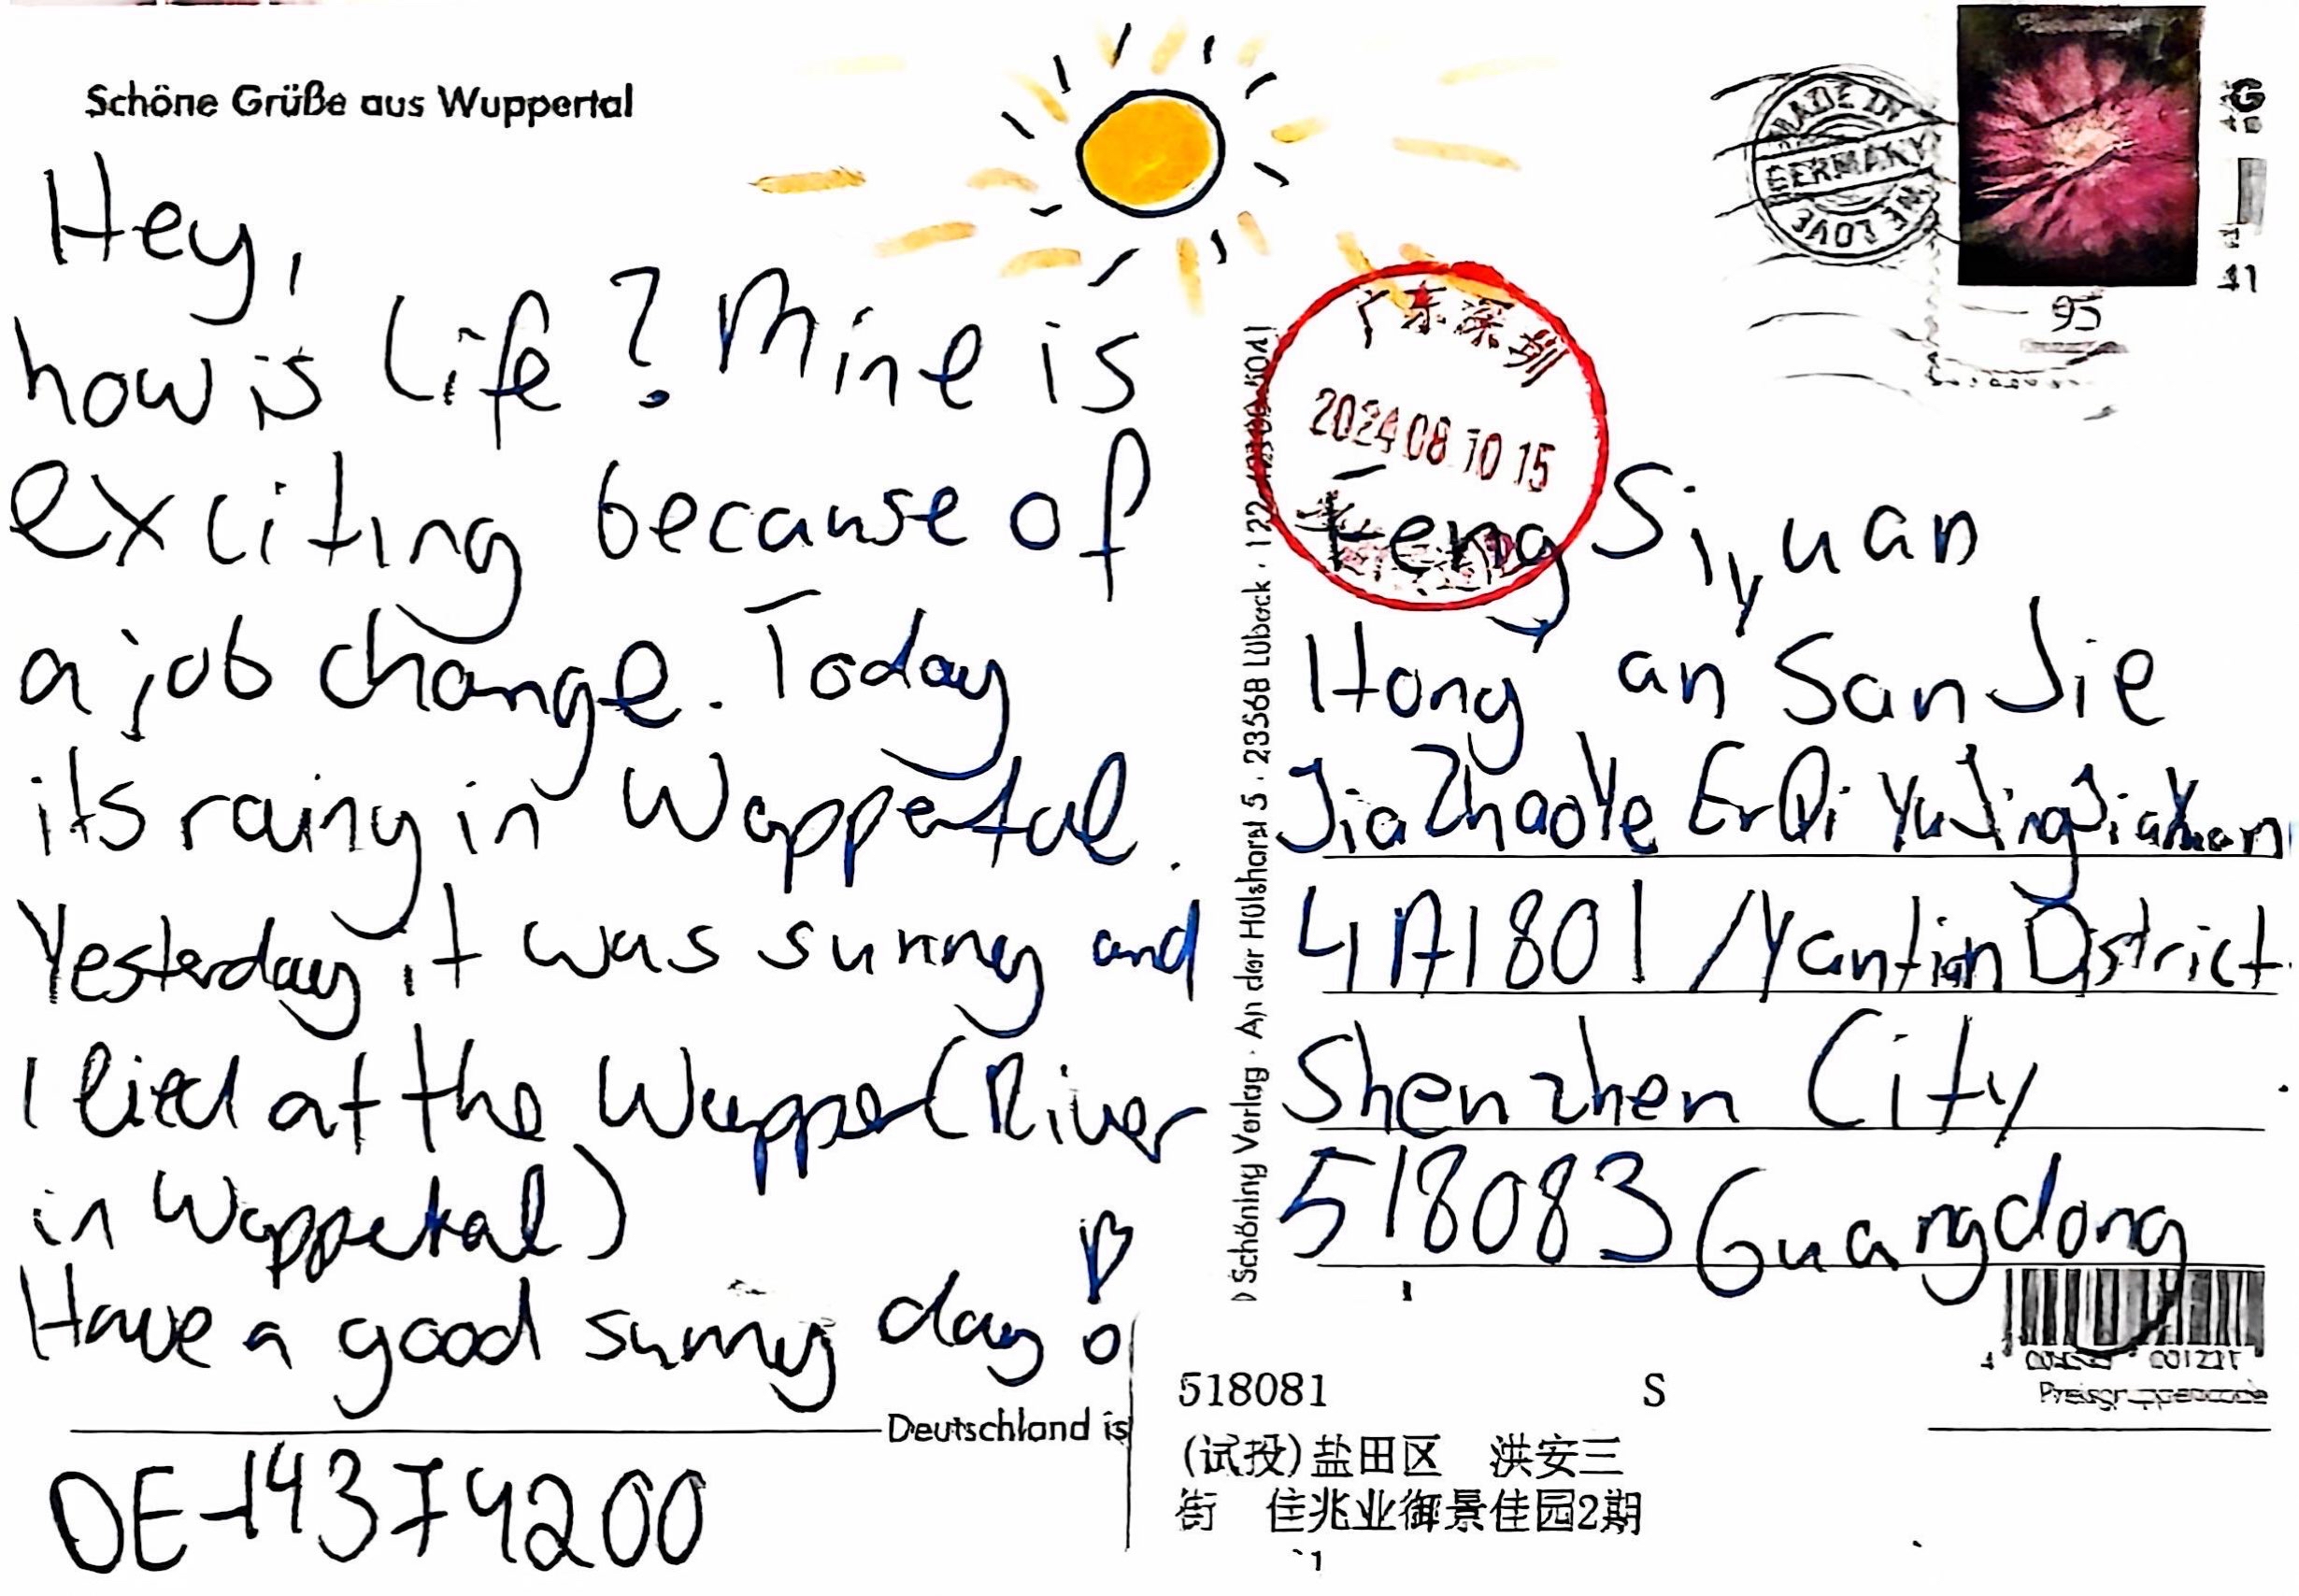 Schöne Grüße aus Wuppertal
Hey,
how is life? Mine is
exciting because of
a job change. Today
its rainy in Wuppertal.
Yesterday it was sunny and
I lied at the Wupper (River
in Wuppertal)
Have a good sunny day
Deutschland is
DE-14374200
D Schöning Verlag · An der Hülshorst 5 · 23568 Lübeck · 122
GERMANY
LOVE
95
广东深圳
2024.08.10 15
Feng Siyuan
Hong an San Jie
JiaZhaoYe ErQi YuJingJiaYuan
4A1801 / Yantian District
Shenzhen City
518083 Guangdong
518081 S
(试投)盐田区 洪安三
街 佳兆业御景佳园2期
1